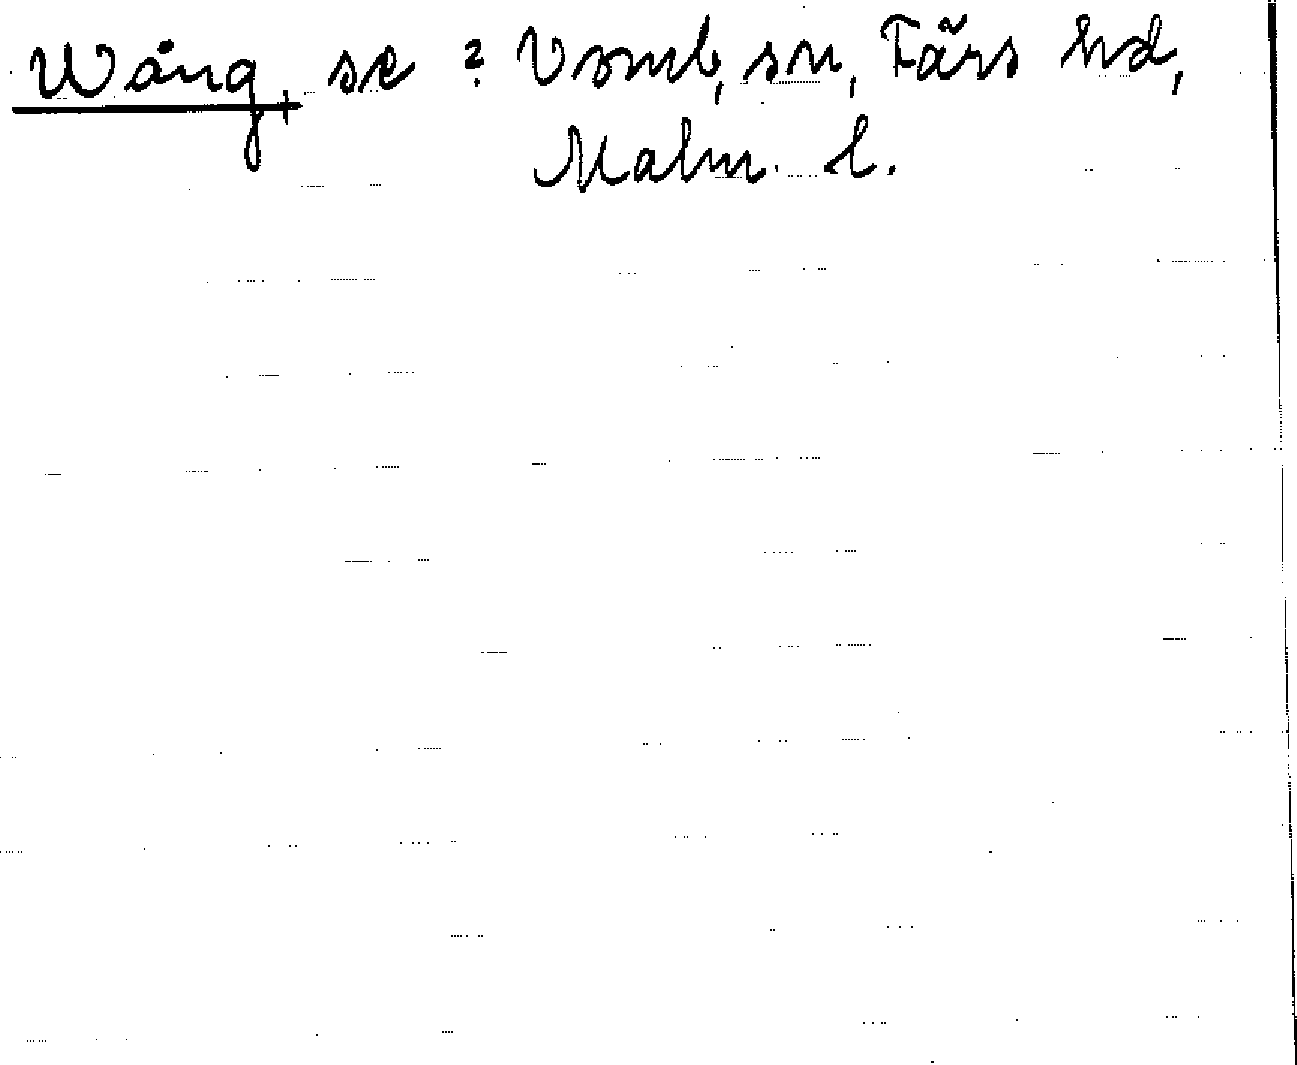 Wång, se ? Vomb, sn, Färs hd,
Malm. l.